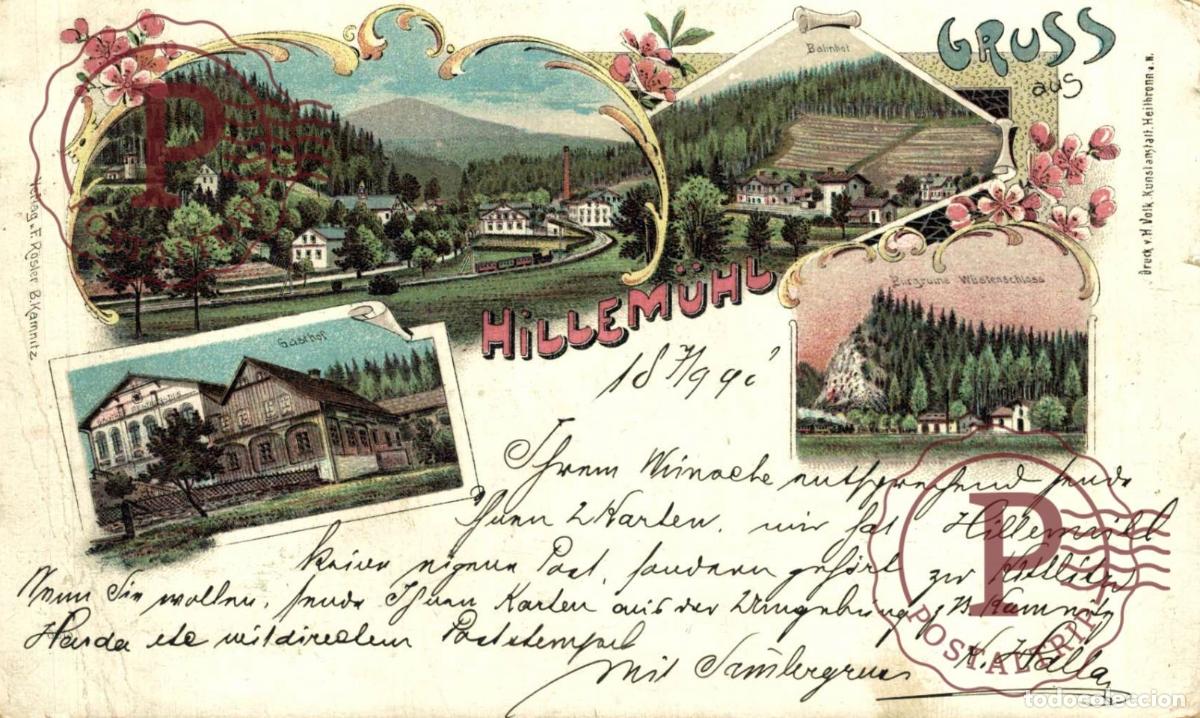 GRUSS
aus
Bahnhof
HILLEMÜHL
Burgruine Wüstenschloss
Gasthof
Verlag v. F. Rösler B. Kamnitz
Druck v. H. Volk, Kunstanstalt, Heilbronn a. N.
18 7/9 99
Ihrem Wunsche entsprechend sende
Ihnen 2 Karten, nur hat Hillemühl
keine eigene Post, sondern gehört zu
Wenn Sie wollen, sende Ihnen Karten aus der Umgebung, B. Kamnitz
Haida etc mit directem Poststempel
Mit Samlergruss
POSTALTRIP
P
todocoleccion